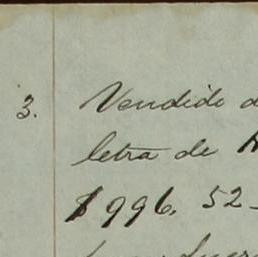 3. Vendido
letra de
$996. 52